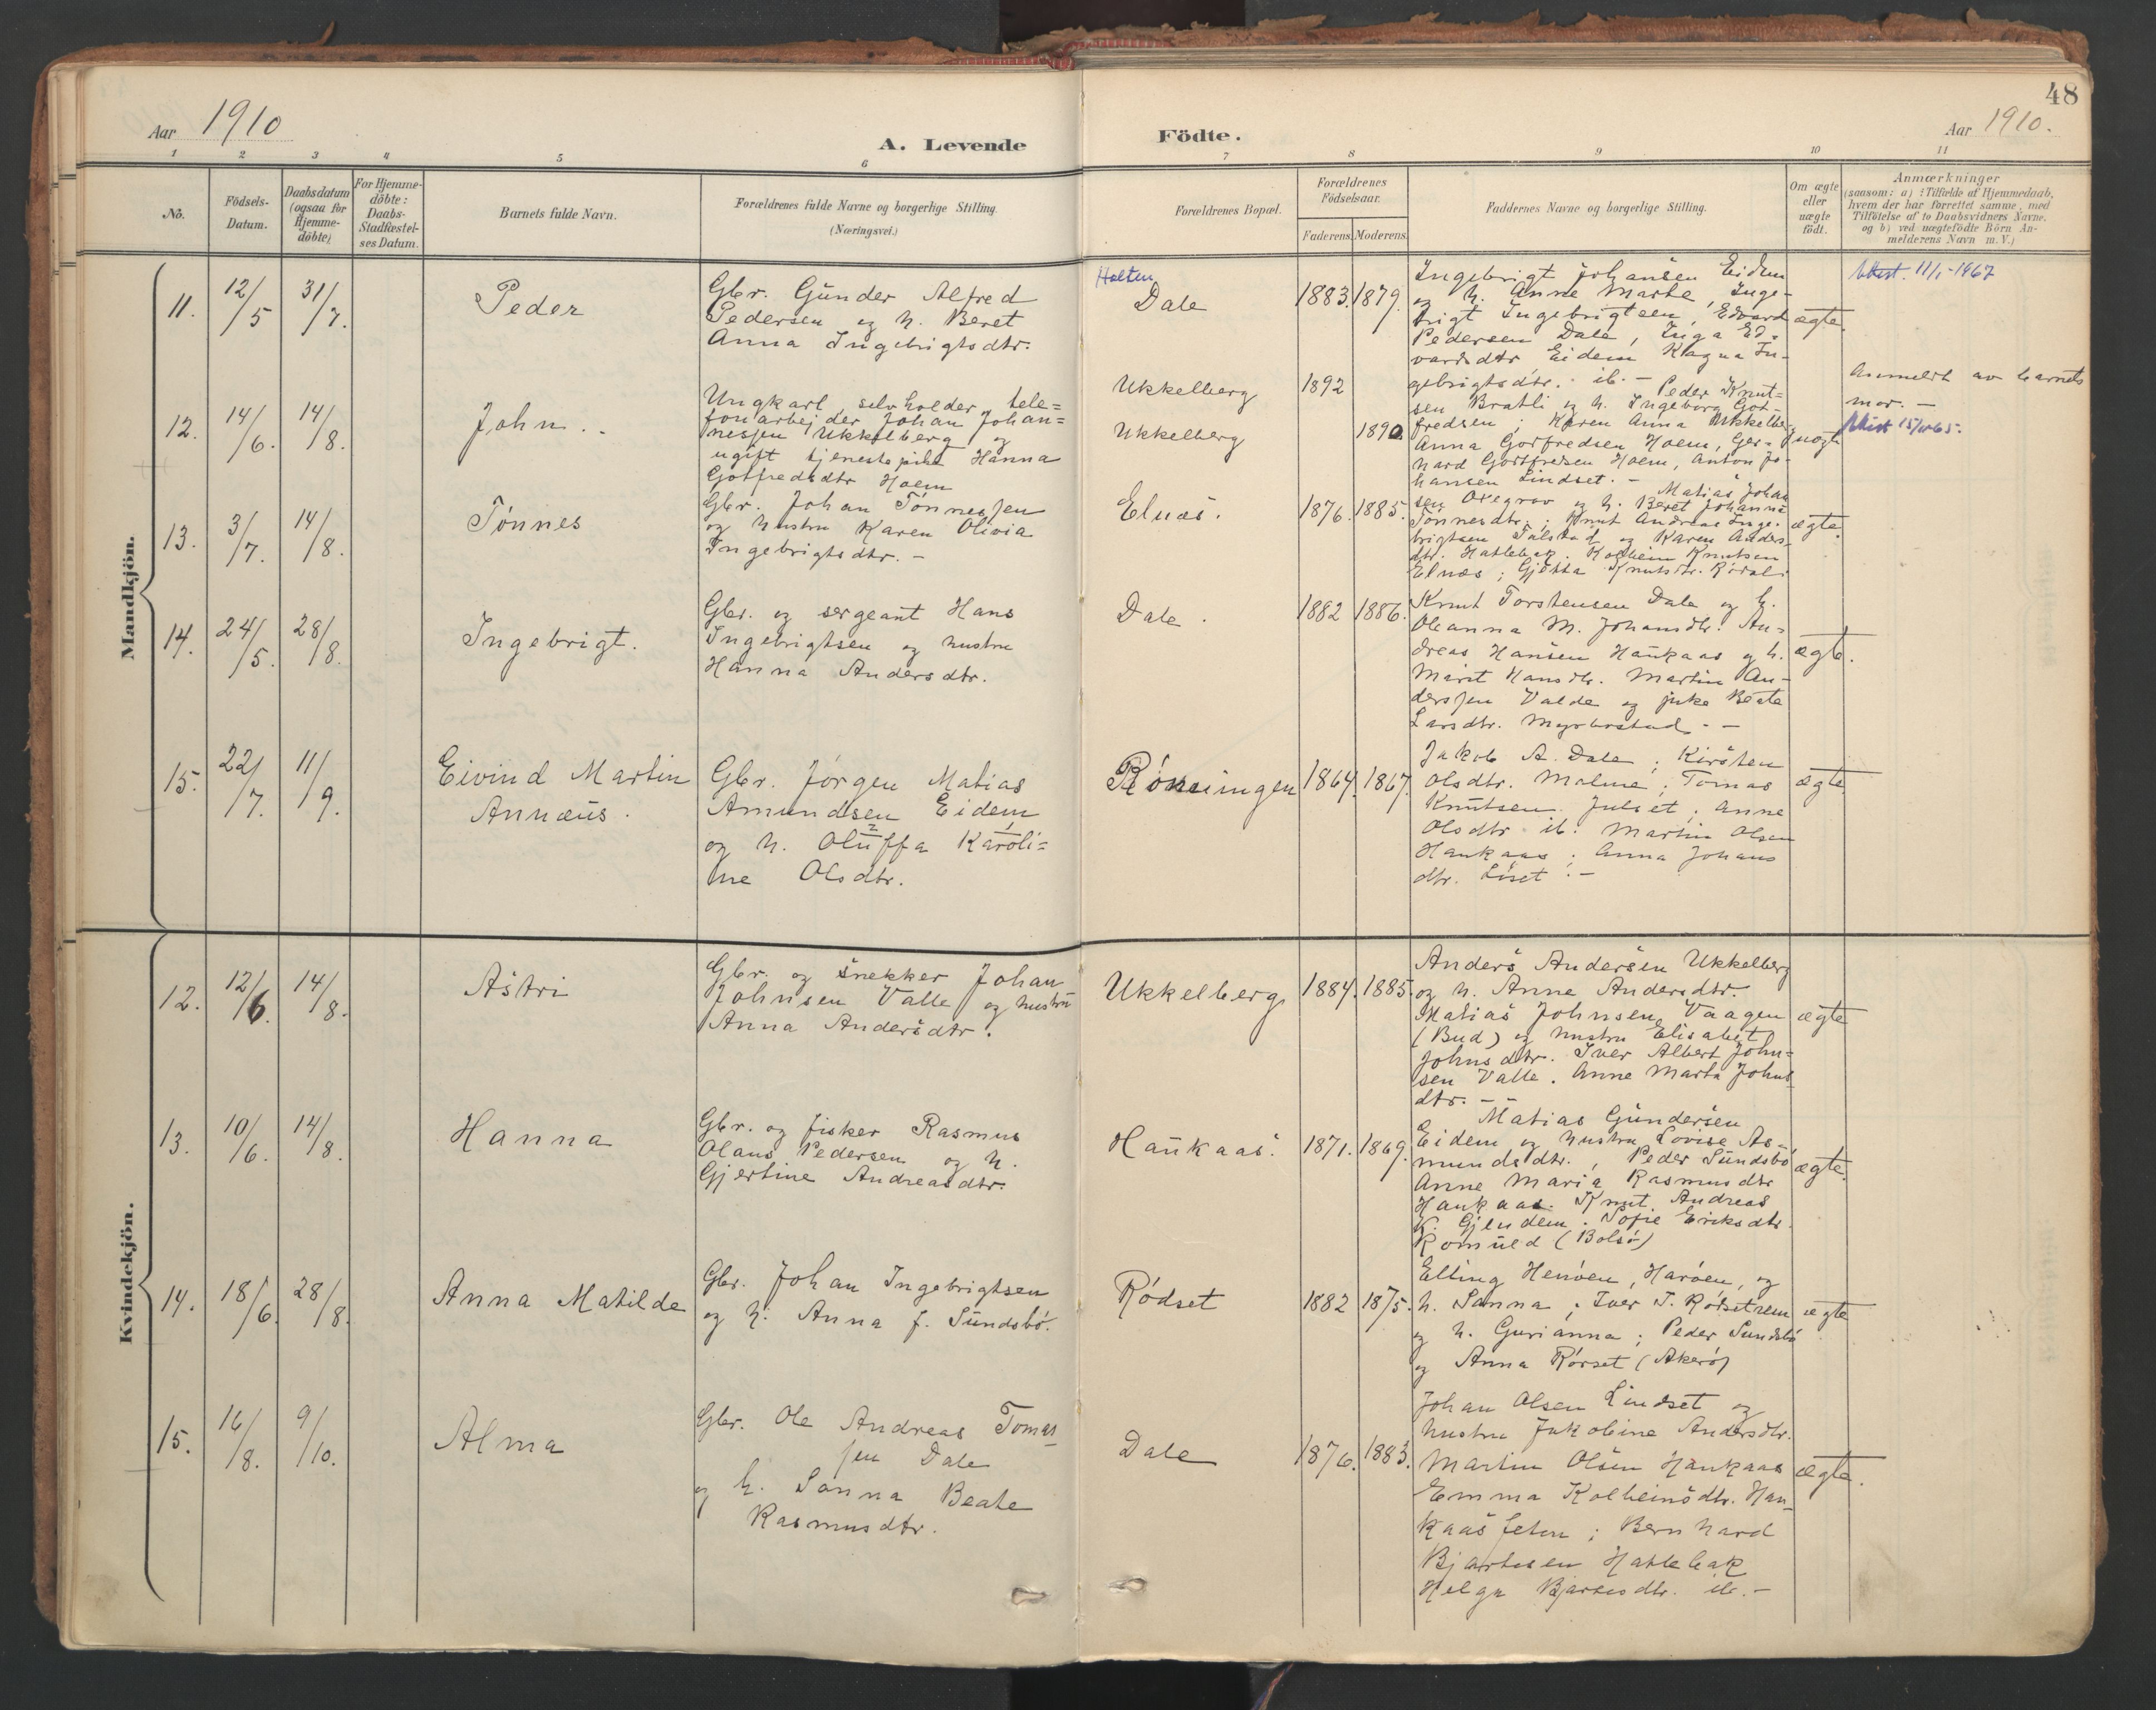 48
Aar 1910
A. Levende
Födte.
Aar 1910.
1 2 3 4 5 6 7 8 9 10 11
No.
Födsels-
Datum.
Daabsdatum
(ogsaa for
Hjemme-
döbte)
For Hjemme-
döbte:
Daabs-
Stadfæstel-
ses Datum.
Barnets fulde Navn.
Forældrenes fulde Navne og borgerlige Stilling.
(Næringsvei.)
Forældrenes Bopæl.
Forældrenes
Födselsaar.
Faderens. Moderens.
Faddernes Navne og borgerlige Stilling.
Om ægte
eller
uægte
födt.
Anmærkninger
(saasom: a) i Tilfælde af Hjemmedaab,
hvem der har forrettet samme, med
Tilföielse af to Daabsvidners Navne,
og b) ved uægtefödte Börn An-
melderens Navn m. V.)
Mandkjön.
11.
12/5
31/7.
Peder
Gbr. Gunder Alfred
Pedersen og h. Beret
Anna Ingebrigtsdtr.
Holten
Dale
1883. 1879.
Ingebrigt Johansen Eidem
og h. Anne Marte, Inge-
brigt Ingebrigtsen, Edvard
Pedersen Dale, Inga Ed-
vardsdtr Eidem Magna In-
gebrigtsdtr. ib. -
ægte.
Attest. 11/1-1967
12.
14/6.
14/8.
John.
Ungkarl, selvholder, tele=
fonarbejder Johan Johan=
nessen Ukkelberg og
ugift tjenestepike Hanna
Gotfredsdtr Hoem
Ukkelberg
Ukkelberg
1892
1890
Peder Knut=
sen Bratli og h. Ingeborg Got-
fredsen; Karen Anna Ukkelberg
Anna Gotfredsen Hoem, Ger-
hard Gottfredsen Hoem, Anton Jo-
hansen Lindset. -
uægte
Anmeldt av barnets
mor. -
Attest
13.
3/7.
14/8.
Tönnes
Gbr. Johan Tönnessen
og hustru Karen Olivia
Ingebrigtsdtr. -
Elnæs.
1876. 1885.
Matias Johan
sen Oxegrov og h. Beret Johanna
Tönnesdtr.; Knut Andreas Inge-
brigtsen Tulstad og Karen Anders-
dtr. Hatlebak. Kolbein Knutsen
Elnæs; Gjetta Knutsdtr.
ægte.
14.
24/5.
28/8.
Ingebrigt.
Gbr. og sergeant Hans
Ingebrigtsen og hustru
Hanna Andersdtr.
Dale.
1882 1886.
Knut Torstensen Dale og h.
Oleanna M. Johansdtr. An-
dreas Hansen Haukaas og h.
Marit Hansdtr. Martin An-
derssen Valde og pike Beate
Larsdtr. Myrbostad. -
ægte.
15.
22/7.
11/9.
Eivind Martin
Annæus.
Gbr. Jörgen Matias
Amundsen Eidem
og h. Oluffa Karoli=
ne Olsdtr.
Rönningen
1864. 1867.
Jakob A. Dale; Kirsten
Olsdtr. Malme; Tomas
Knutsen Julset; Anne
Olsdtr ib. Martin Olsen
Haukaas; Anna Johans
dtr. Liset. -
ægte.
Kvindekjön.
12.
12/6.
14/8.
Astri
Gbr. og snekker Johan
Johnsen Valle og hustru
Anna Andersdtr.
Ukkelberg
1884. 1885.
Anders Andersen Ukkelberg
og h. Anne Andersdtr.
Matias Johnsen Vaagen
(Bud) og hustru Elisabet
Johnsdtr. Iver Albert John=
sen Valle. Anne Marta Johns
dtr. -
ægte
13.
10/6.
14/8.
Hanna
Gbr. og fisker Rasmus
Olaus Pedersen og h.
Gjertine Andreasdtr.
Haukaas.
1871. 1869.
Matias Gundersen
Eidem og hustru Lovise As-
mundsdtr., Peder Sundsbö
Anne Maria Rasmusdtr
Haukaas. Knut Andreas
K. Gjendem. Sofie Eriksdtr.
Romuld (Bolsö)
ægte.
14.
18/6.
28/8.
Anna Matilde
Gbr. Johan Ingebrigtsen
og h. Anna f. Sundsbö.
Rödset
1882 1875.
Elling Henöen, Haröen, og
h. Sanna; Iver T. Rödsetrem
og h. Gurianna; Peder Sundsbö
og Anna Rörset (Akerö)
ægte
15.
16/8.
9/10.
Alma
Gbr. Ole Andreas Tomas
sen Dale
og h. Sanna Beate
Rasmusdtr.
Dale
1876. 1883.
Johan Olsen Lindset og
hustru Jakobine Andersdtr.
Martin Olsen Haukaas
Emma Kolbeinsdtr. Hau-
kaassetn; Bernhard
Bjartesen Hatlebak
Helga Bjartesdtr. ib. -
ægte.